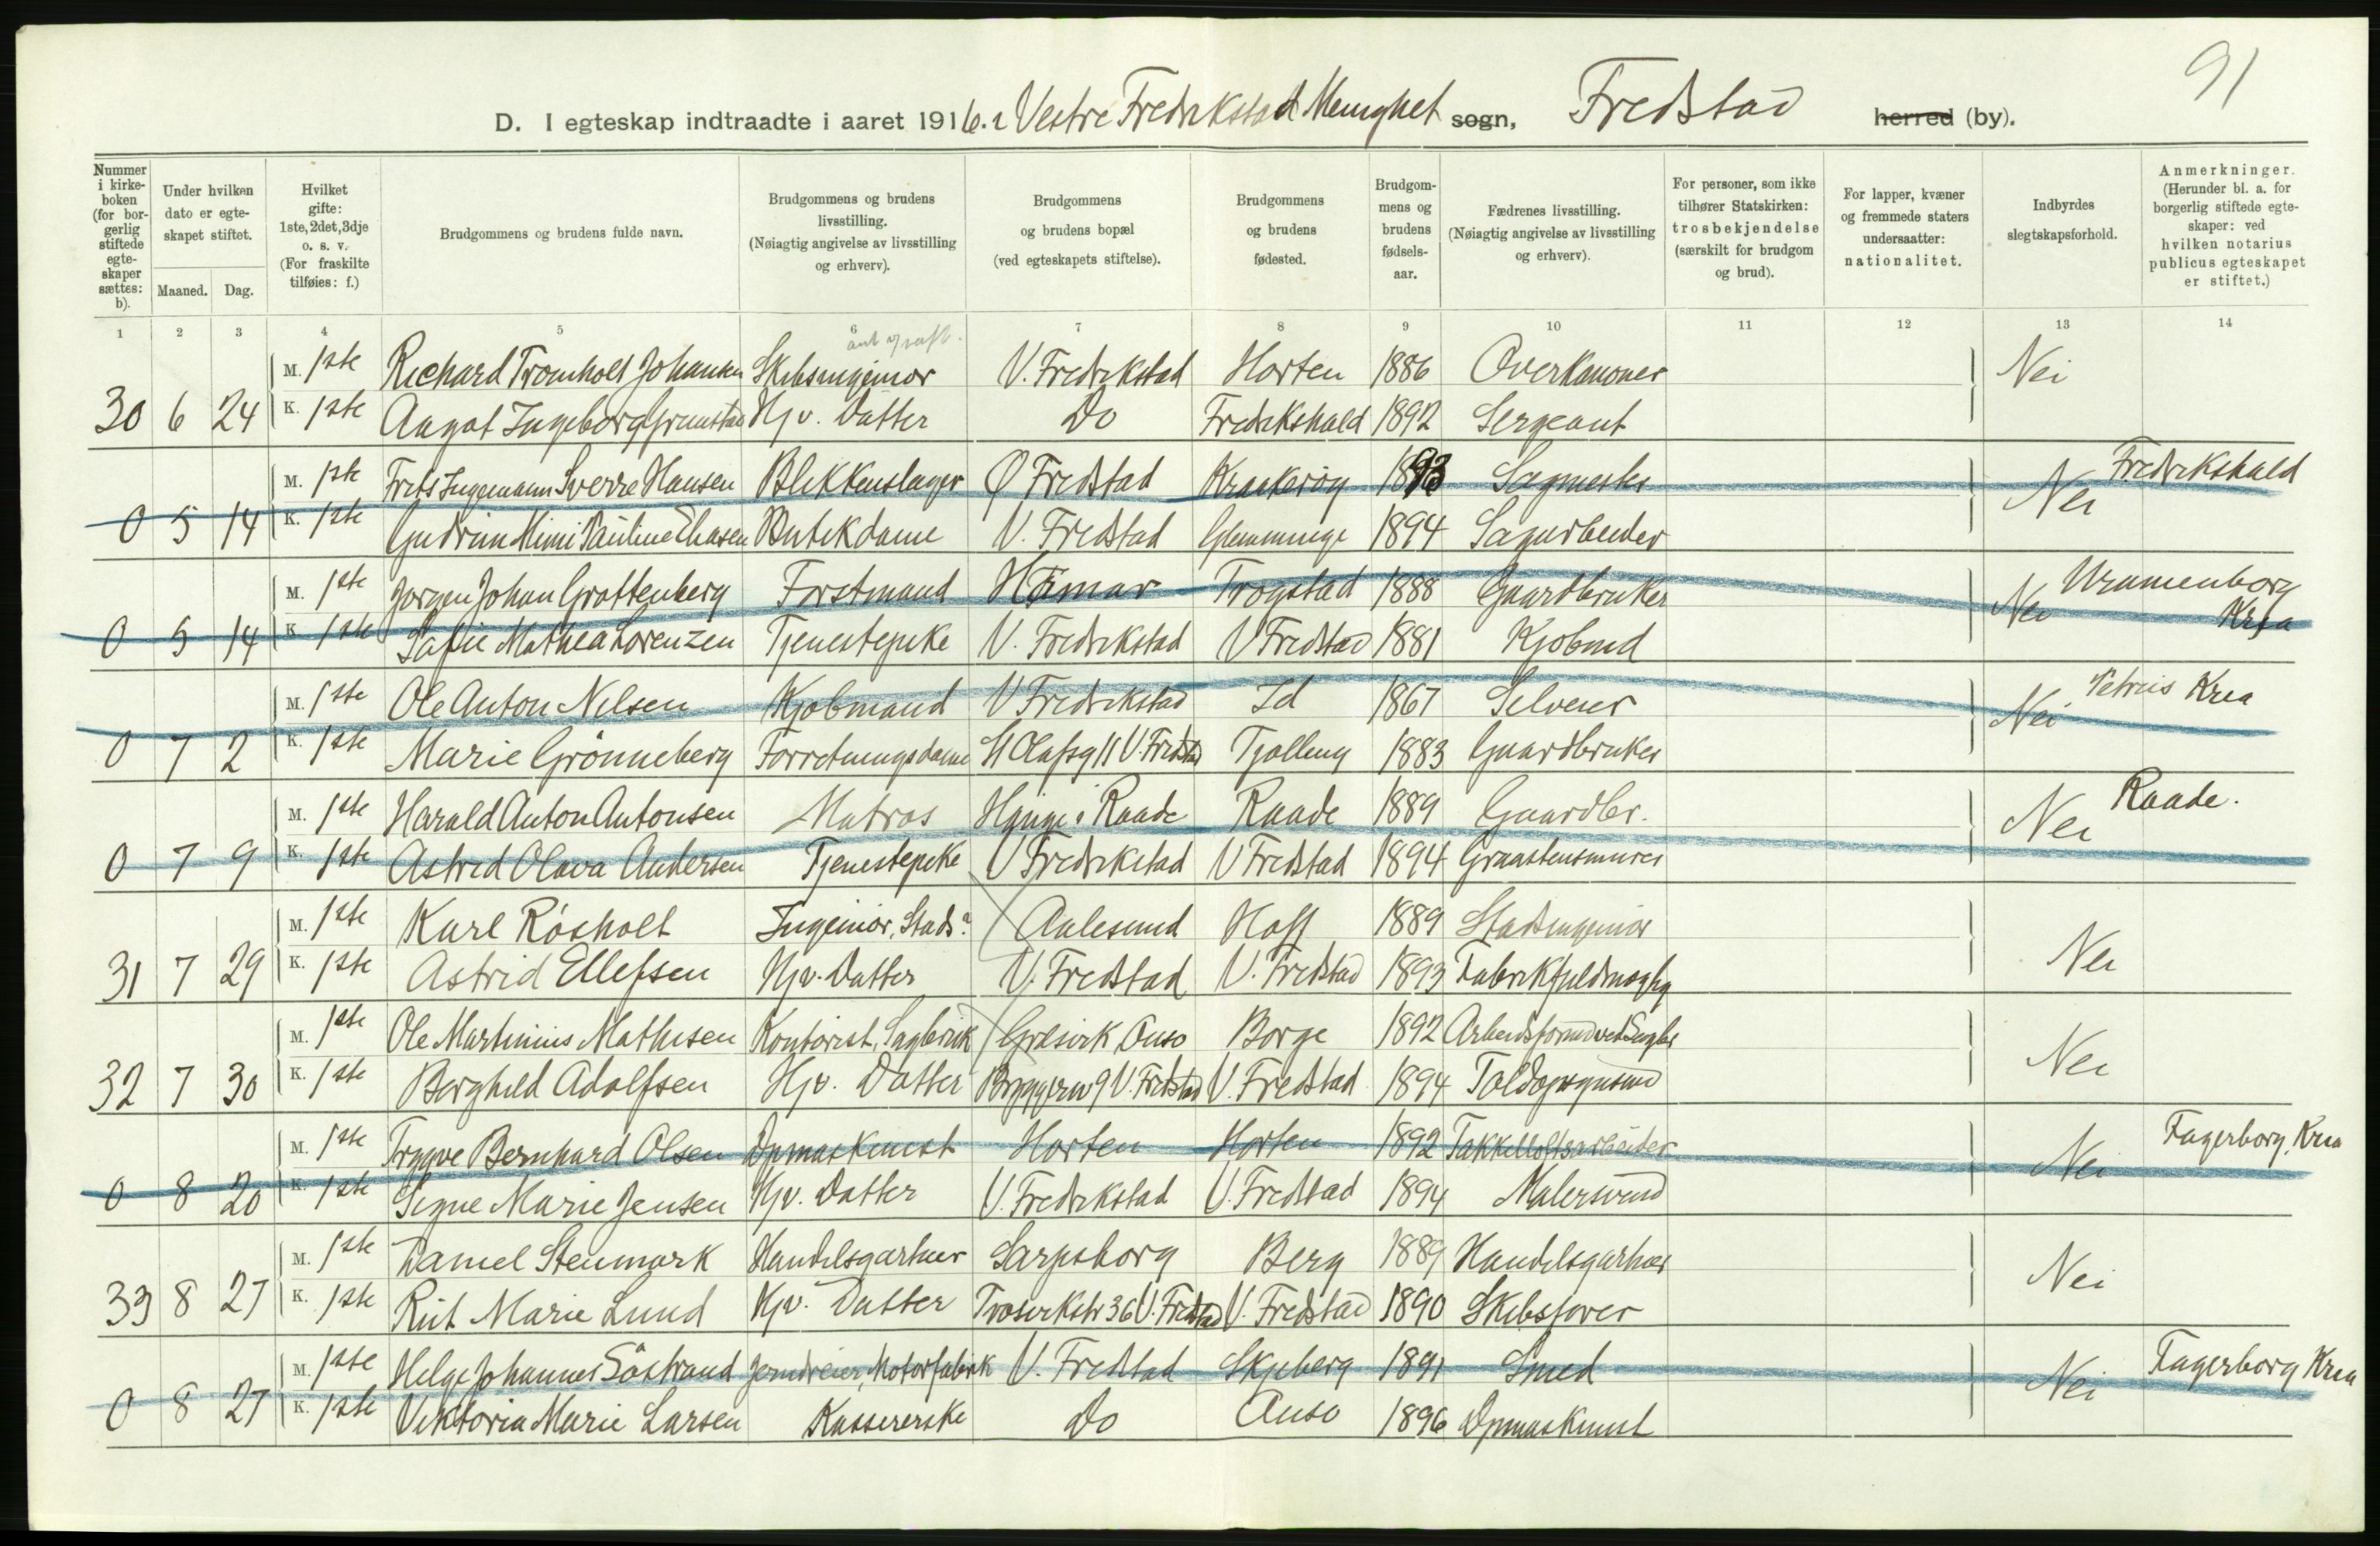 91
D. I egteskap indtraadte i aaret 1916. i Vestre Fredrikstad Menighet sogn, Fredstad herred (by).
Nummer i kirkeboken (for borgerlig stiftede egteskaper sættes: b).
Under hvilken dato er egteskapet stiftet.
Maaned. Dag.
Hvilket gifte: 1ste, 2det, 3dje o. s. v. (For fraskilte tilføies: f.)
Brudgommens og brudens fulde navn.
Brudgommens og brudens livsstilling. (Nøiagtig angivelse av livsstilling og erhverv).
Brudgommens og brudens bopæl (ved egteskapets stiftelse).
Brudgommens og brudens fødested.
Brudgommens og brudens fødselsaar.
Fædrenes livsstilling. (Nøiagtig angivelse av livsstilling og erhverv).
For personer, som ikke tilhører Statskirken: trosbekjendelse (særskilt for brudgom og brud).
For lapper, kvæner og fremmede staters undersaatter: nationalitet.
Indbyrdes slegtskapsforhold.
Anmerkninger. (Herunder bl. a. for borgerlig stiftede egteskaper: ved hvilken notarius publicus egteskapet er stiftet.)
1 2 3 4 5 6 7 8 9 10 11 12 13 14
M. 1ste Richard Tromholt Johansen Skibsingeniør V. Fredrikstad Horten 1886 Overkanoner Nei
30 6 24 K. 1ste Aagot Ingeborg Hj v. Datter Do Fredrikshald 1892 Sergeant
M. 1ste Frits Ingemann Sverre Hansen Blikkenslager Ø Fredstad Kraakerøy 1893 Sagmester Nei Fredrikshald
0 5 14 K. 1ste Gudrun Mimi Pauline Butikdame V. Fredstad Glemminge 1894 Sagarbeider
M. 1ste Jørgen Johan Grøttenberg Forstmand Hamar Trøgstad 1888 Gaardbruker Nei Uranienborg Kria
0 5 14 K. 1ste Sofie Mathea Lorenzen Tjenestepike V. Fredrikstad V Fredstad 1881 Kjøbmd
M. 1ste Ole Anton Nilsen Kjøbmand V Fredrikstad Id 1867 Selveier Nei Petrus Kria
0 7 2 K. 1ste Marie Grønneberg Forretningsdame St Olafsg 11 V. Fredstad Tjølling 1883 Gaardbruker
M. 1ste Harald Anton Antonsen Matros i Raade Raade 1889 Gaardbr. Nei Raade.
0 7 9 K. 1ste Astrid Olava Andersen Tjenestepike V Fredrikstad V Fredstad 1894 Graastensmurer
M. 1ste Karl Røsholt Ingeniør, Stads? Aalesund Hoff 1889 Stadsingeniør Nei
31 7 29 K. 1ste Astrid Ellefsen Hjv. Datter V. Fredstad V. Fredstad 1893 Fabrikfuldmægtig
M. 1ste Ole Martinius Mathisen Kontorist, Sagbruk Græsvik Onsø Borge 1892 Arbeidsformd ved Sagbr Nei
32 7 30 K. 1ste Borghild Adolfsen Hjv. Datter 9 V. Fredstad V. Fredstad 1894 Toldopsynsmd
M. 1ste Trygve Bernhard Olsen Dpmaskinist Horten Horten 1892 Takkelloftsarbeider Nei Fagerborg, Kria
0 8 20 K. 1ste Signe Marie Jensen Hjv. Datter V. Fredrikstad V. Fredstad 1894 Malersvend
M. 1ste Daniel Stenmark Handelsgartner Sarpsborg Berg 1889 Handelsgartner Nei
33 8 27 K. 1ste Rut Marie Lund Hjv. Datter Trosvikstr 36 V. Fredstad V. Fredstad 1890 Skibsfører
M. 1ste Helge Johannes Søstrand Jerndreier, Motorfabrik V. Fredstad Skjeberg 1891 Smed Nei Fagerborg Kria
0 8 27 K. 1ste Viktoria Marie Larsen Kassererske Do Onsø 1896 Dpmaskinist